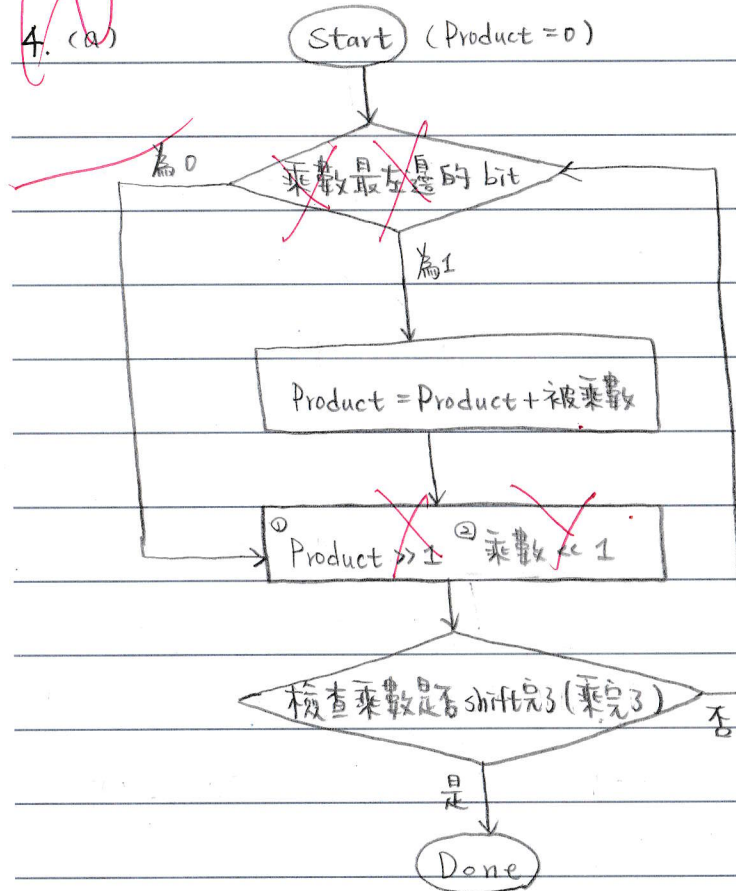 4. (a)
Start (Product = 0)
為0
乘數最左邊的 bit
為1
Product = Product + 被乘數
① Product >> 1 ② 乘數 << 1
檢查乘數是否shift完了(乘完了)
否
是
Done